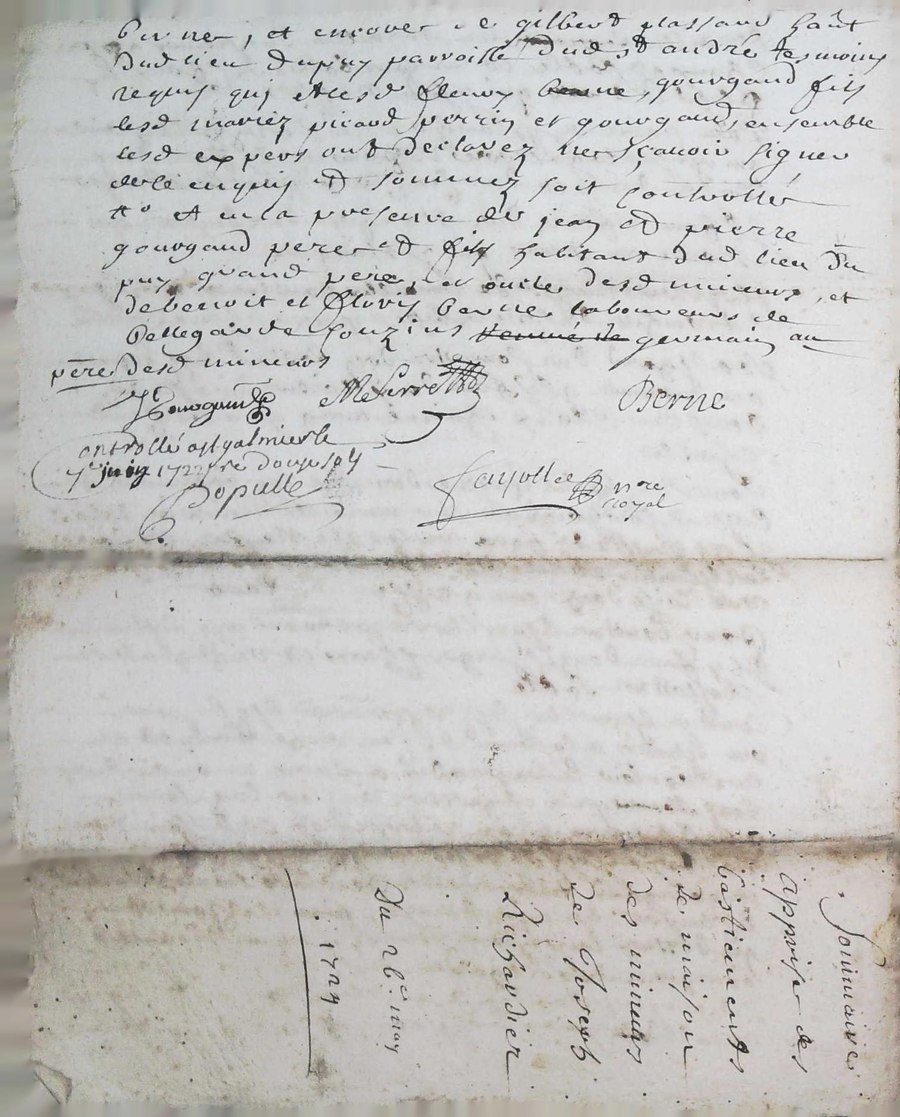 et encores de gilbert plassard hañt
dud lieu dupuy parroisse dud st andré tesmoins
requis qui et lesd fleury berne, gourgaud fils
lesd mariez picard perrin et gourgaud ensemble
lesd expers ont declarez ne sçavoir signer
de ce enquis et sommez soit controllé
et en la presence de jean et pierre
gourgaud pere et fils habitant dud lieu du
puy grand pere, et oncle desd mineurs, et
de benoit et flory berne laboureurs de
Bellegarde couzins germain au
père desd mineurs
Berne
ontrollé a st galmier le
7e juin 172
Populle
fayolle nore
royal
Sommaire
apprise des
bastiments
de maison
des mineurs
de Joseph
Richardier
Du 26e may
1724